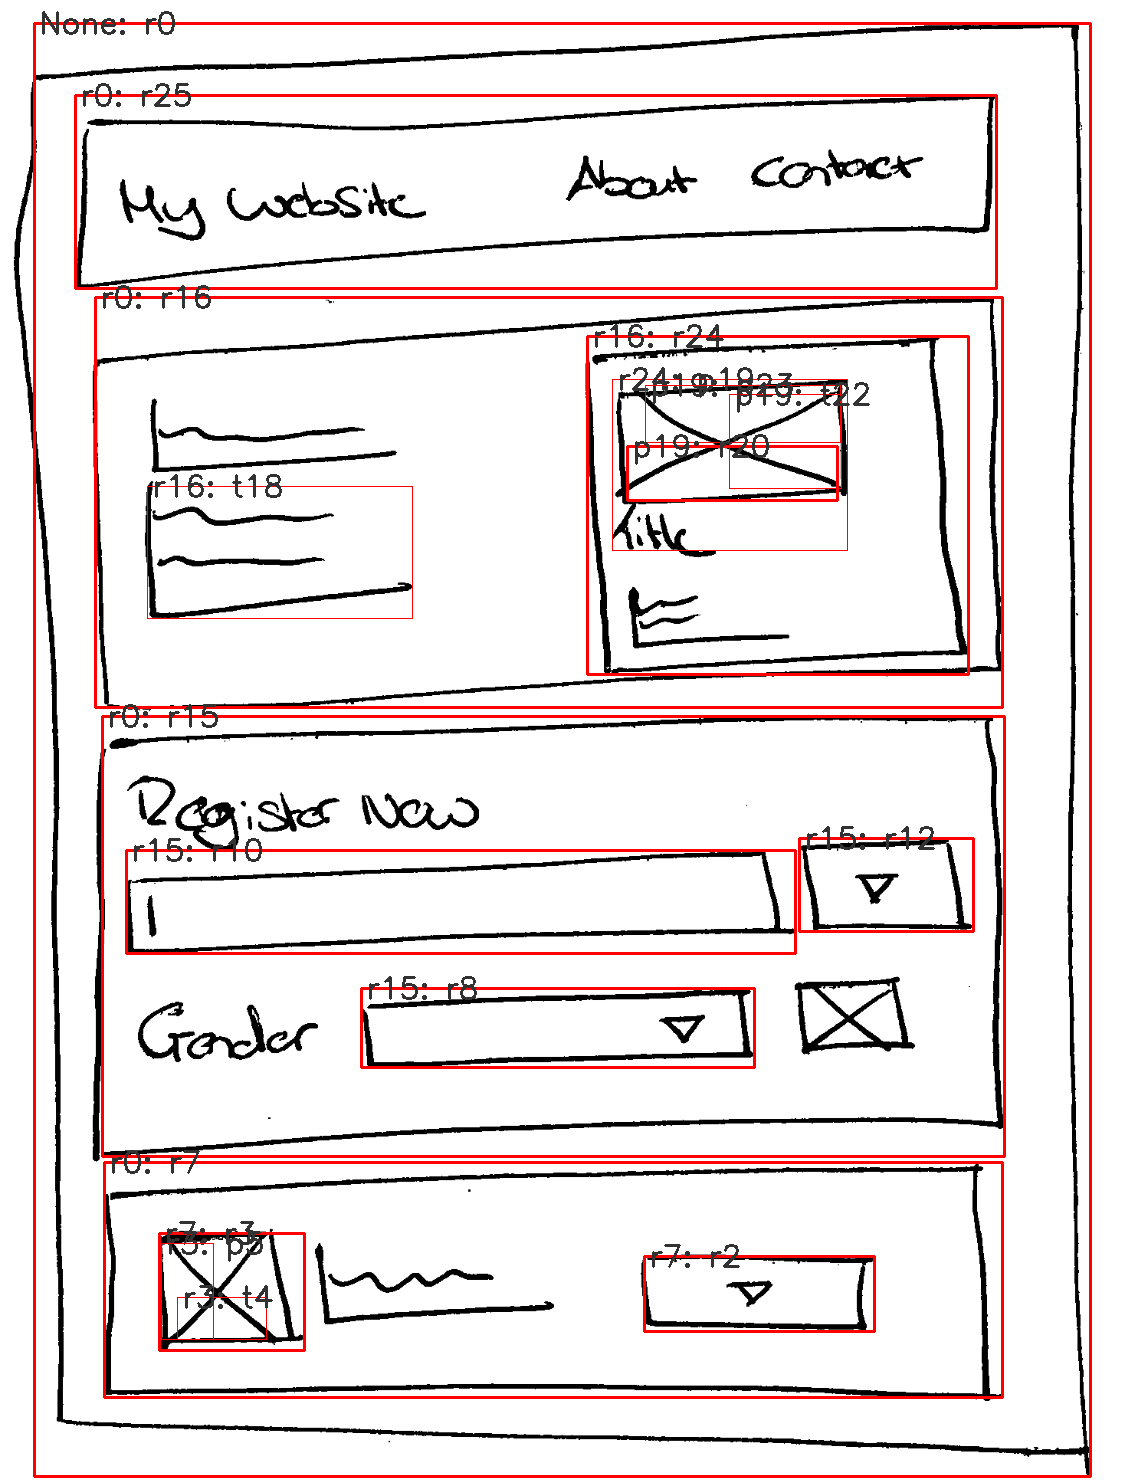 None: r0
r0: r25
My Website About Contact
r0: r16
r16: r24
p19: t22
p19: r20
r16: t18
Title
r0: r15
Register Now
r15: r10
r15: r12
r15: r8
Gender
r0: r7
r7: r3
r3: p5
r7: r2
r3: t4